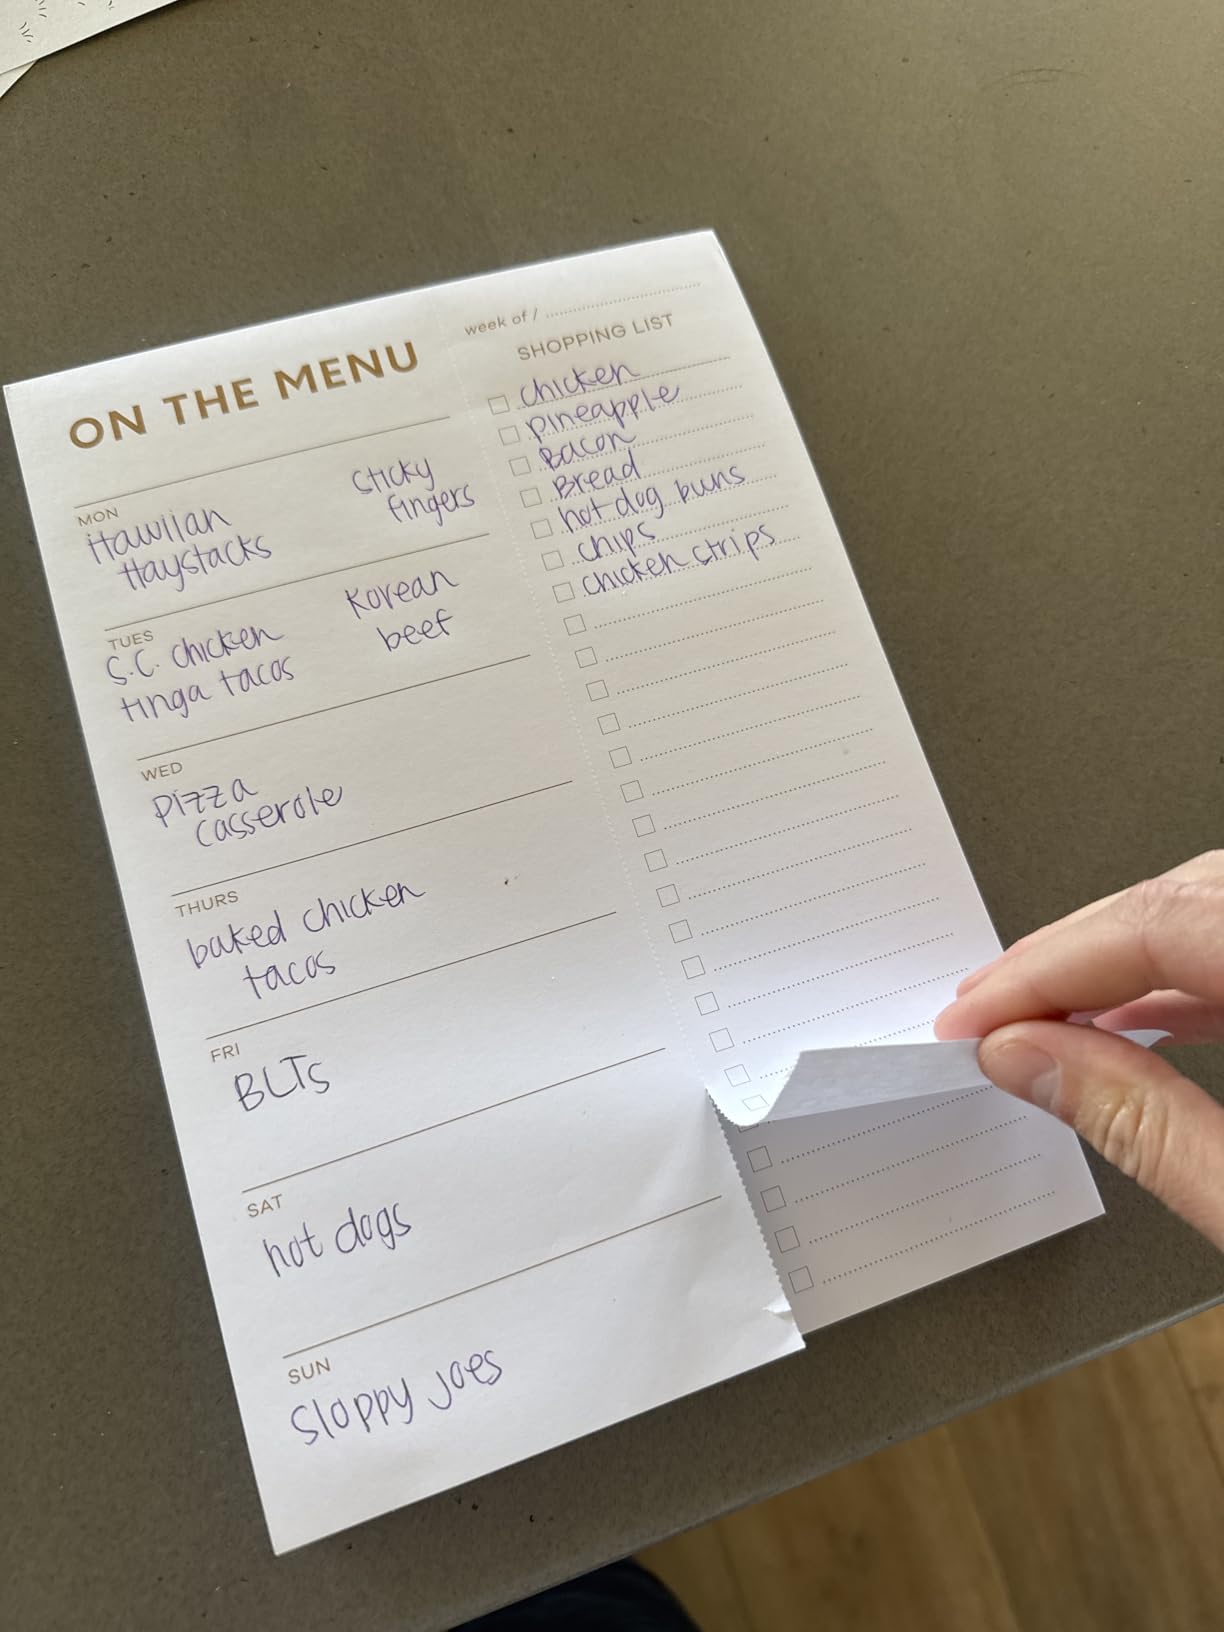 ON THE MENU
MON
Hawiian
Haystacks
Sticky
fingers
TUES
S.C. chicken
tinga tacos
Korean
beef
WED
pizza
casserole
THURS
baked chicken
tacos
FRI
BLTs
SAT
hot dogs
SUN
sloppy joes
week of /
SHOPPING LIST
chicken
pineapple
Bacon
Bread
hot dog buns
chips
chicken strips